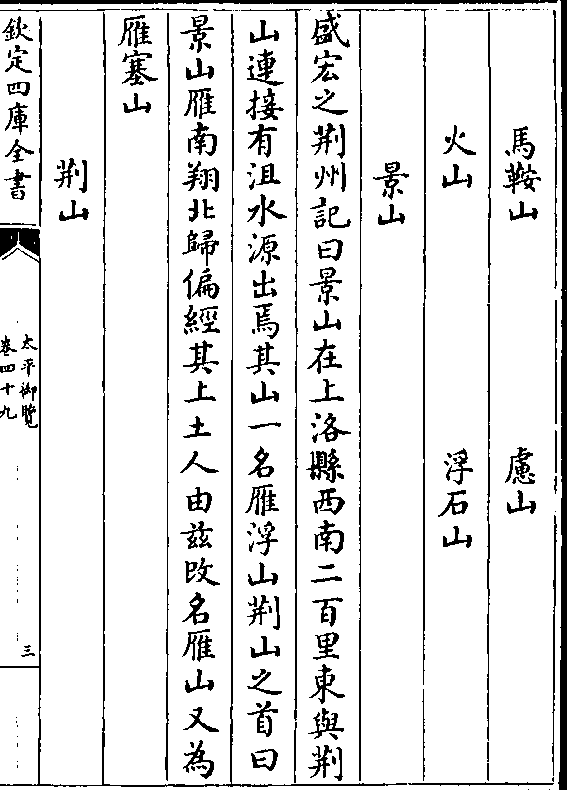 馬鞍山　慮山
火山　浮石山
景山
盛宏之荆州記曰景山在上洛縣西南二百里東與荆
山連接有沮水源出焉其山一名雁浮山荆山之首曰
景山雁南翔北歸偏經其上土人由兹改名雁山又為
雁塞山
荆山
欽定四庫全書
太平御覽
卷四十九
三